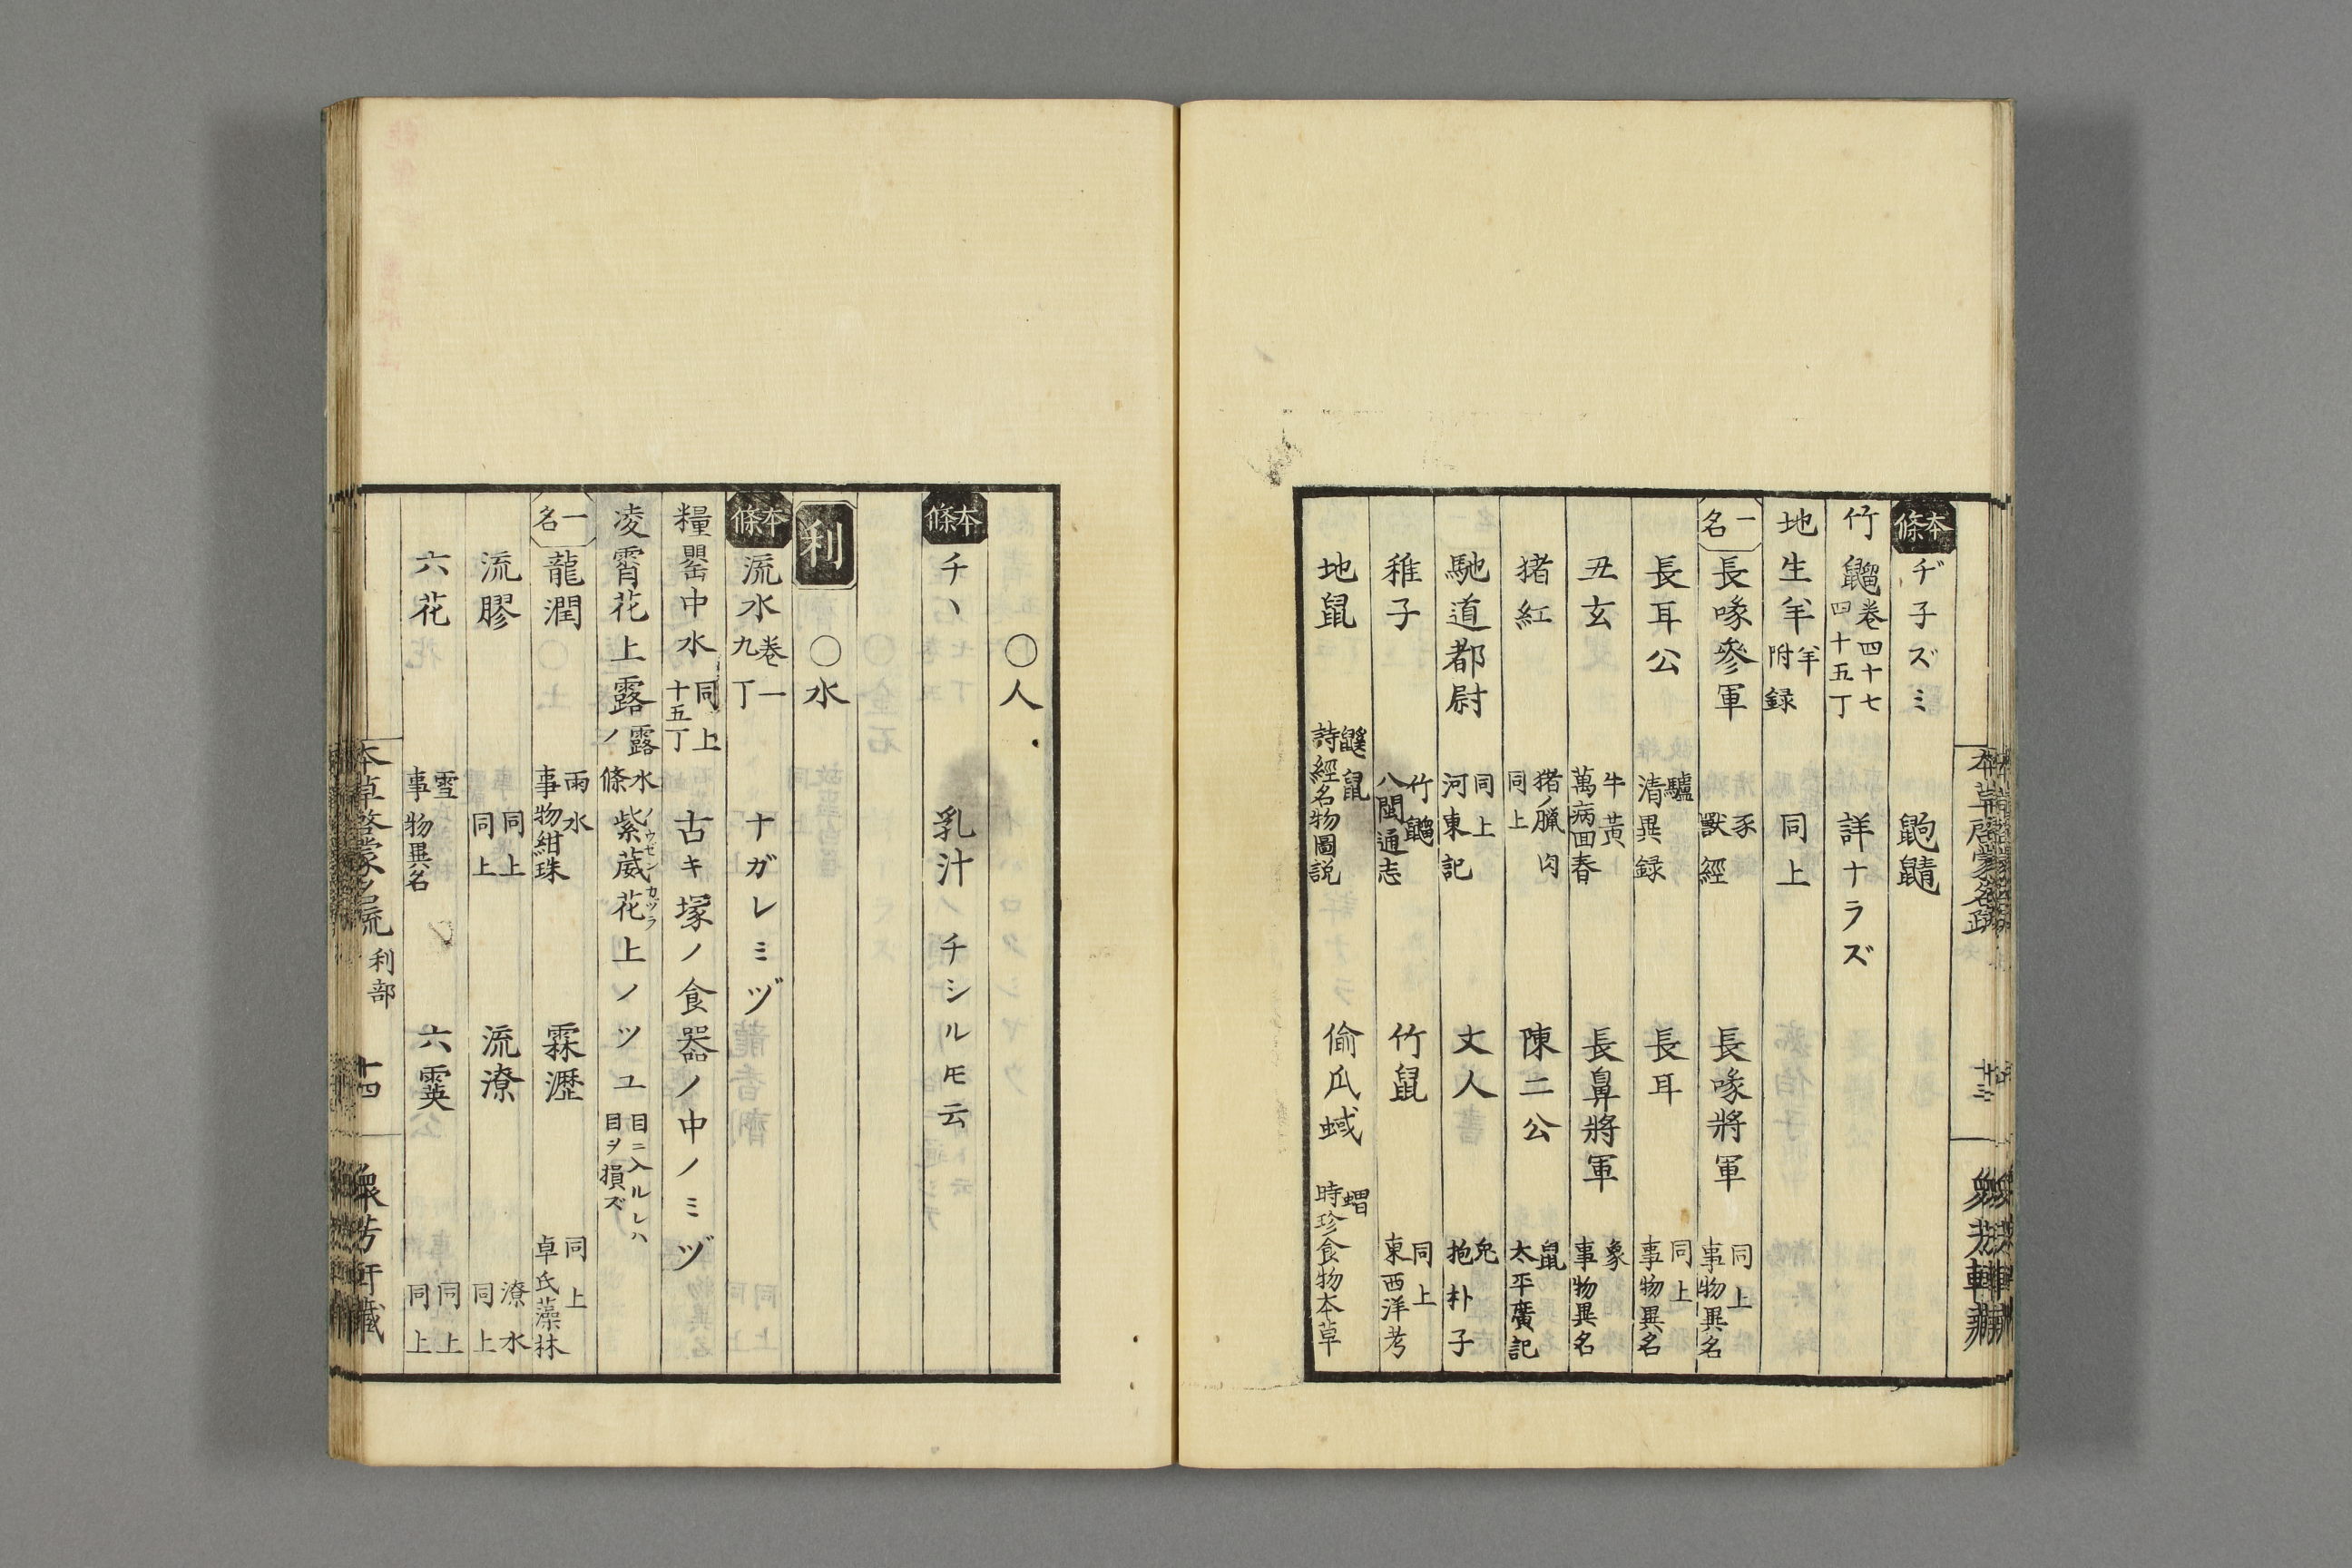 本條 ヂ子ズミ 鼩鼱
竹鼺 卷四十七 四十五丁 詳ナラズ
地生羊 羊附録 同上
一名 長喙參軍 豕 獸經 長喙將軍 同上 事物異名
長耳公 驢 清異録 長耳 同上 事物異名
丑玄 牛黄 萬病回春 長鼻將軍 象 事物異名
猪紅 猪ノ臘肉 同上 陳二公 鼠 太平廣記
馳道都尉 同上 河東記 丈人 兔 抱朴子
稚子 竹䶉 八閩通志 竹鼠 同上 東西洋考
地鼠 鼷鼠 詩經名物圖説 偷瓜蜮 蝟 時珍食物本草
〇人
本條 チヽ 乳汁 チシルモ云
利 〇水
本條 流水 卷一 九丁 ナガレミヅ
糧罌中水 同上 十五丁 古キ塚ノ食器ノ中ノミヅ
凌霄花上露 露水ノ條 紫葳花上ノツユ ノウゼンカヅラ 目ニ入ルレハ 目ヲ損ズ
一名 龍潤 雨水 事物紺珠 霖瀝 同上 卓氏藻林
流膠 同上 同上 流潦 潦水 同上
六花 雪 事物異名 六霙 同上 同上
本草啓蒙名疏 利部 十四 衆芳軒藏